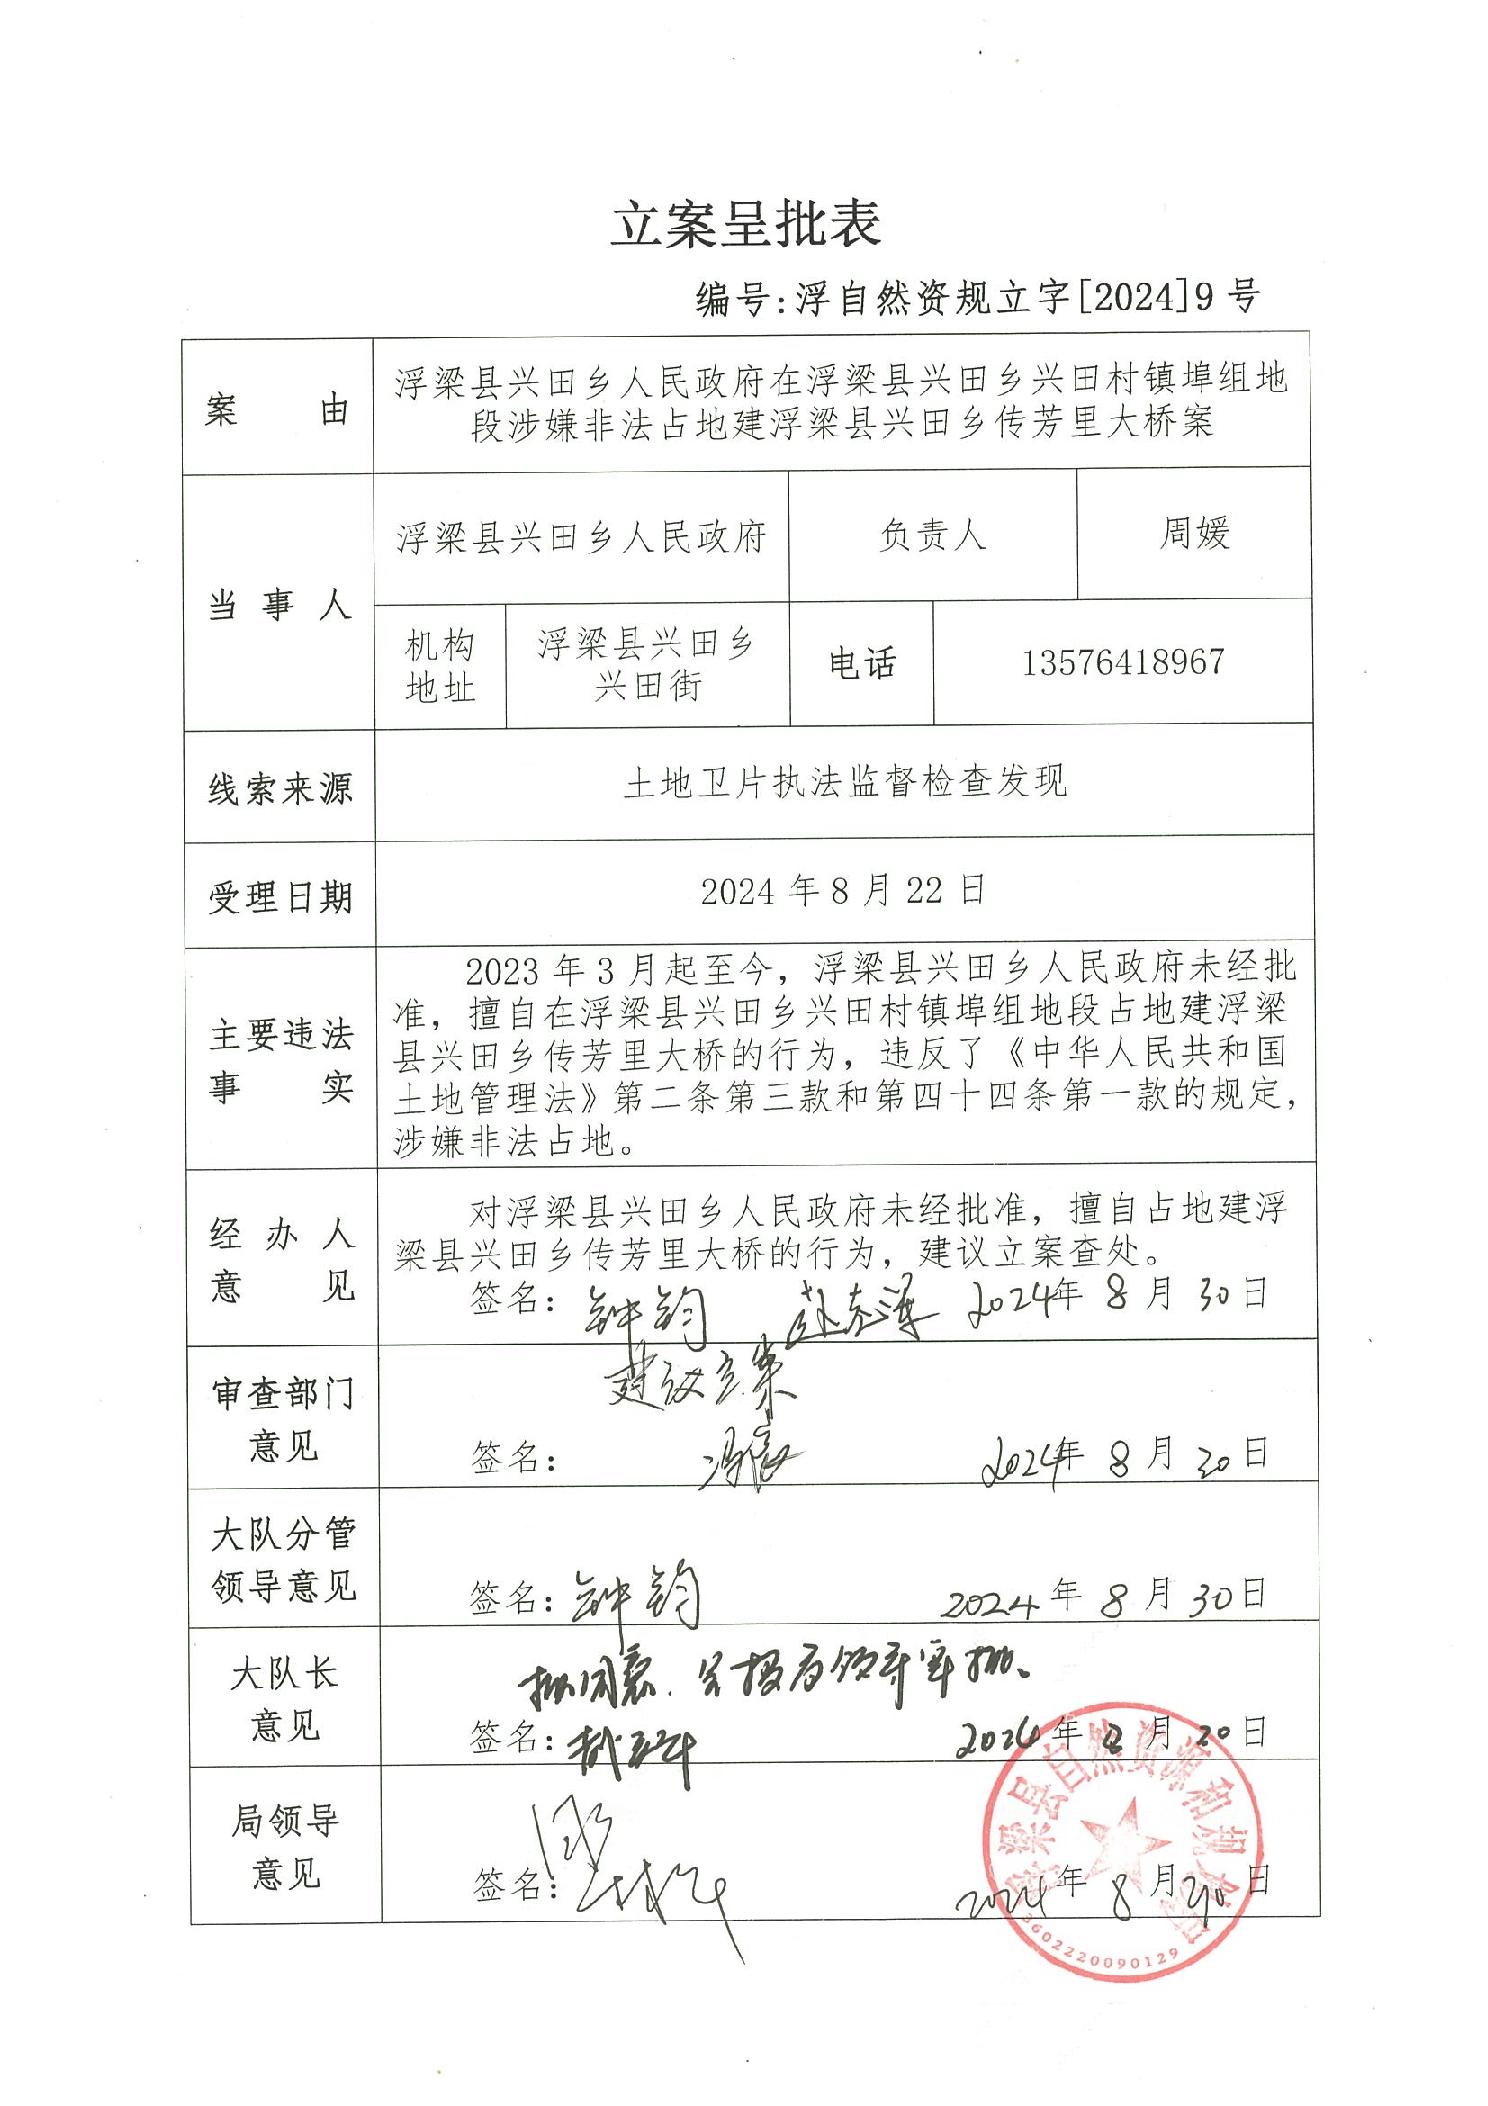 立案呈批表
编号:浮自然资规立字[2024]9号
案由
浮梁县兴田乡人民政府在浮梁县兴田乡兴田村镇埠组地
段涉嫌非法占地建浮梁县兴田乡传芳里大桥案
当事人
浮梁县兴田乡人民政府
负责人
周媛
机构
地址
浮梁县兴田乡
兴田街
电话
13576418967
线索来源
土地卫片执法监督检查发现
受理日期
2024年8月22日
主要违法
事实
2023年3月起至今，浮梁县兴田乡人民政府未经批
准，擅自在浮梁县兴田乡兴田村镇埠组地段占地建浮梁
县兴田乡传芳里大桥的行为，违反了《中华人民共和国
土地管理法》第二条第三款和第四十四条第一款的规定，
涉嫌非法占地。
经办人
意见
对浮梁县兴田乡人民政府未经批准，擅自占地建浮
梁县兴田乡传芳里大桥的行为，建议立案查处。
签名：钟钧 2024年8月30日
审查部门
意见
建议立案
签名： 2024年8月30日
大队分管
领导意见
签名：钟钧 2024年8月30日
大队长
意见
拟同意，呈报局领导审批。
签名： 2024年8月30日
局领导
意见
签名： 2024年8月30日
浮梁县自然资源和规划局
3602220090129